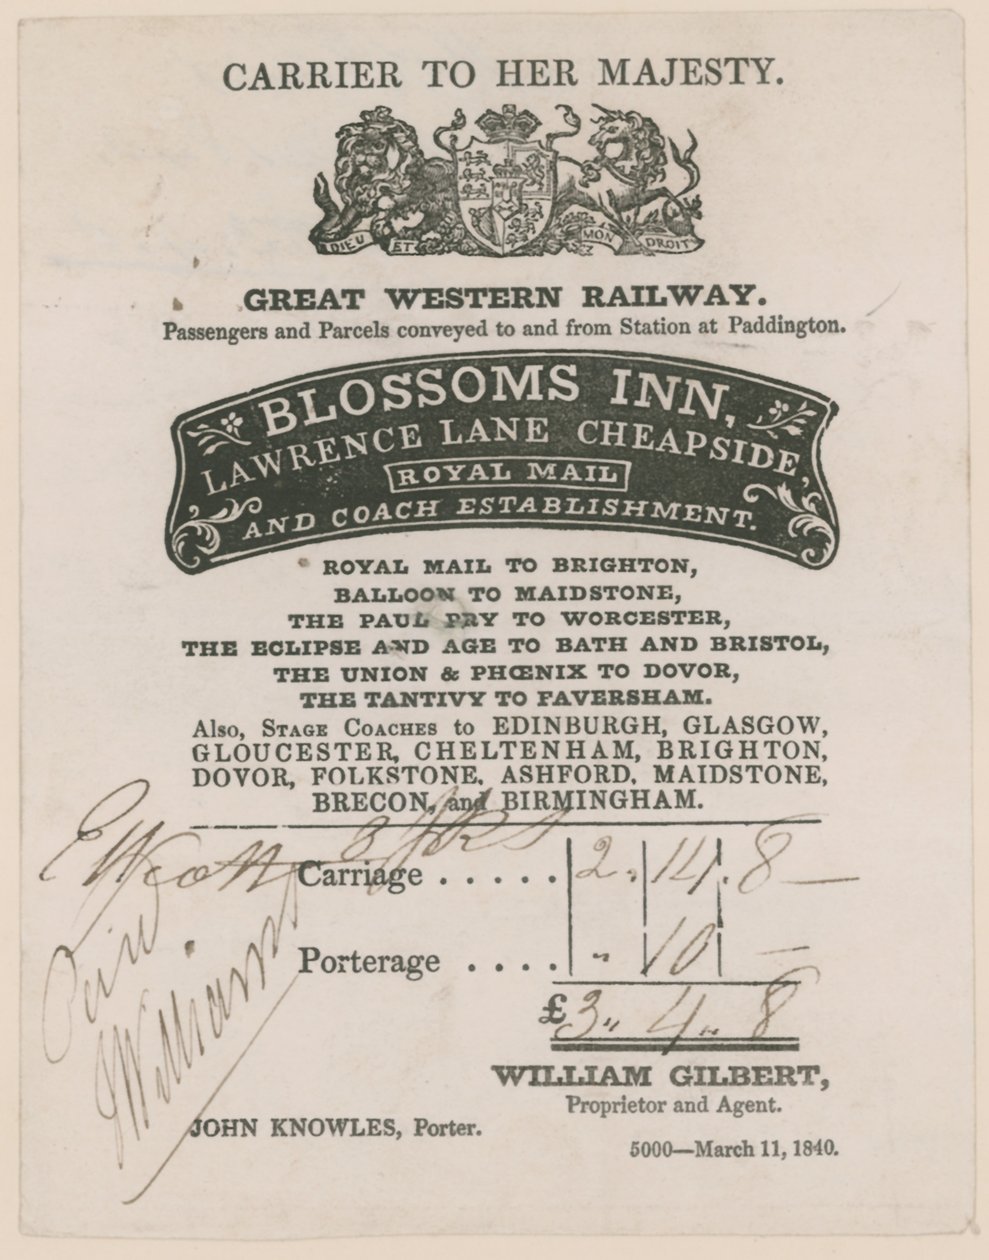 CARRIER TO HER MAJESTY.
DIEU ET MON DROIT
GREAT WESTERN RAILWAY.
Passengers and Parcels conveyed to and from Station at Paddington.
BLOSSOMS INN,
LAWRENCE LANE CHEAPSIDE,
ROYAL MAIL
AND COACH ESTABLISHMENT.
ROYAL MAIL TO BRIGHTON,
BALLOON TO MAIDSTONE,
THE PAUL PRY TO WORCESTER,
THE ECLIPSE AND AGE TO BATH AND BRISTOL,
THE UNION & PHŒNIX TO DOVOR,
THE TANTIVY TO FAVERSHAM.
Also, STAGE COACHES to EDINBURGH, GLASGOW,
GLOUCESTER, CHELTENHAM, BRIGHTON,
DOVOR, FOLKSTONE, ASHFORD, MAIDSTONE,
BRECON, and BIRMINGHAM.
Carriage . . . . . 2 . 14 . 8
Porterage . . . . " 10 –
£ 3 " 4 " 8
Williams
WILLIAM GILBERT,
Proprietor and Agent.
JOHN KNOWLES, Porter.
5000—March 11, 1840.